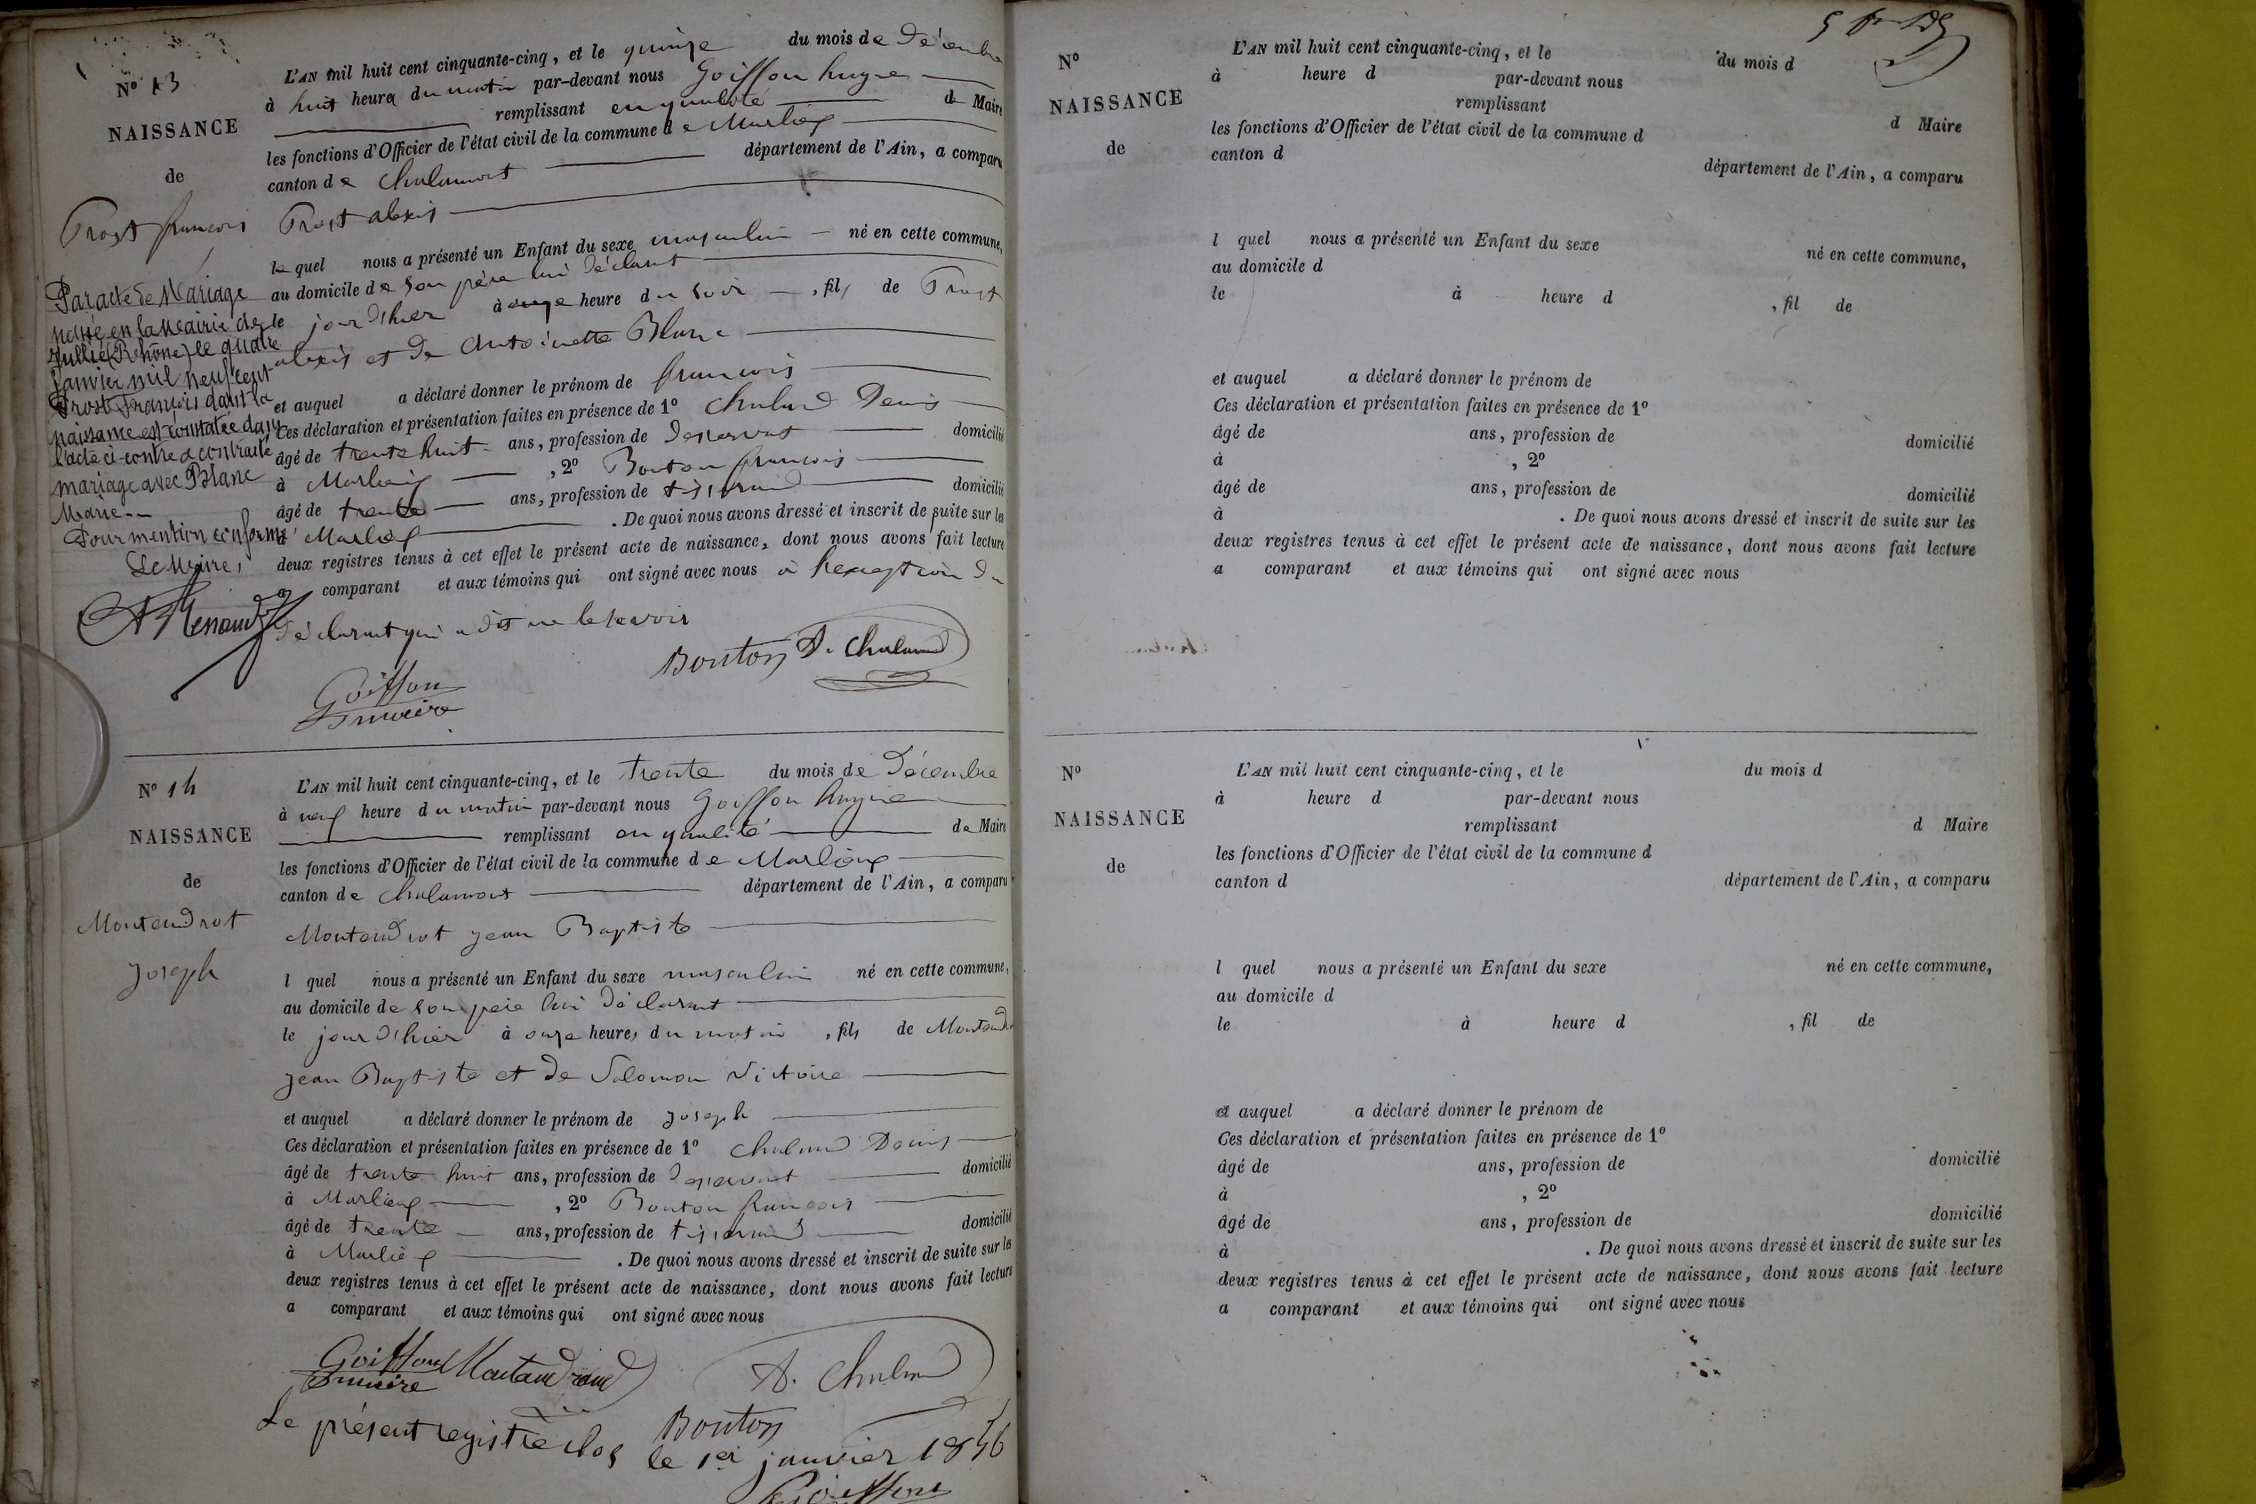 N° 13
NAISSANCE
de
Prost françois
L'AN mil huit cent cinquante-cinq, et le quinze du mois de Décembre
à huit heure du matin par-devant nous Goiffon hugue
remplissant en qualité de Maire
les fonctions d'Officier de l'état civil de la commune de Marlieux
canton de Chalamont département de l'Ain, a comparu
Prost alexis
le quel nous a présenté un Enfant du sexe masculin né en cette commune,
au domicile de son père lui déclarant
le jour d'hier à onze heure du soir, fils de Prost
alexis et de Antoinette Blanc
et auquel a déclaré donner le prénom de françois
Ces déclaration et présentation faites en présence de 1° Chaland Denis
âgé de trente huit ans, profession de desservant domicilié
à Marlieux, 2° Bouton françois
âgé de trente ans, profession de tisserand domicilié
à Marlieux. De quoi nous avons dressé et inscrit de suite sur les
deux registres tenus à cet effet le présent acte de naissance, dont nous avons fait lecture
a comparant et aux témoins qui ont signé avec nous à l'exception du
déclarant qui a dit ne le savoir
Par acte de Mariage
passé en la Mairie de
Jullié (Rhône) le quatre
Janvier mil neuf cent
Prost François dont la
naissance est constatée dans
l'acte ci-contre a contracté
mariage avec Blanc
Marie
Pour mention conforme
Le Maire,
A Renaud
Bouton D. Chaland
Goiffon
maire
N° 14
NAISSANCE
de
Montendrot
Joseph
L'AN mil huit cent cinquante-cinq, et le trente du mois de Décembre
à neuf heure du matin par-devant nous Goiffon hugue
remplissant en qualité de Maire
les fonctions d'Officier de l'état civil de la commune de Marlieux
canton de Chalamont département de l'Ain, a comparu
Montendrot jean Baptiste
l quel nous a présenté un Enfant du sexe masculin né en cette commune,
au domicile de son père lui déclarant
le jour d'hier à onze heures du matin, fils de Montend
jean Baptiste et de Salomon Victoire
et auquel a déclaré donner le prénom de joseph
Ces déclaration et présentation faites en présence de 1° Chaland Denis
âgé de trente huit ans, profession de desservant domicilié
à Marlieux, 2° Bouton françois
âgé de trente ans, profession de tisserand domicilié
à Marlieux. De quoi nous avons dressé et inscrit de suite sur les
deux registres tenus à cet effet le présent acte de naissance, dont nous avons fait lecture
a comparant et aux témoins qui ont signé avec nous
Goiffon
maire
D. Chaland
Bouton
Le présent registre clos le 1er janvier 1856
Goiffon
N°
NAISSANCE
de
L'AN mil huit cent cinquante-cinq, et le du mois d
à heure d par-devant nous
remplissant d Maire
les fonctions d'Officier de l'état civil de la commune d
canton d département de l'Ain, a comparu
l quel nous a présenté un Enfant du sexe né en cette commune,
au domicile d
le à heure d , fil de
et auquel a déclaré donner le prénom de
Ces déclaration et présentation faites en présence de 1°
âgé de ans, profession de domicilié
à , 2°
âgé de ans, profession de domicilié
à . De quoi nous avons dressé et inscrit de suite sur les
deux registres tenus à cet effet le présent acte de naissance, dont nous avons fait lecture
a comparant et aux témoins qui ont signé avec nous
N°
NAISSANCE
de
L'AN mil huit cent cinquante-cinq, et le du mois d
à heure d par-devant nous
remplissant d Maire
les fonctions d'Officier de l'état civil de la commune d
canton d département de l'Ain, a comparu
l quel nous a présenté un Enfant du sexe né en cette commune,
au domicile d
le à heure d , fil de
et auquel a déclaré donner le prénom de
Ces déclaration et présentation faites en présence de 1°
âgé de ans, profession de domicilié
à , 2°
âgé de ans, profession de domicilié
à . De quoi nous avons dressé et inscrit de suite sur les
deux registres tenus à cet effet le présent acte de naissance, dont nous avons fait lecture
a comparant et aux témoins qui ont signé avec nous